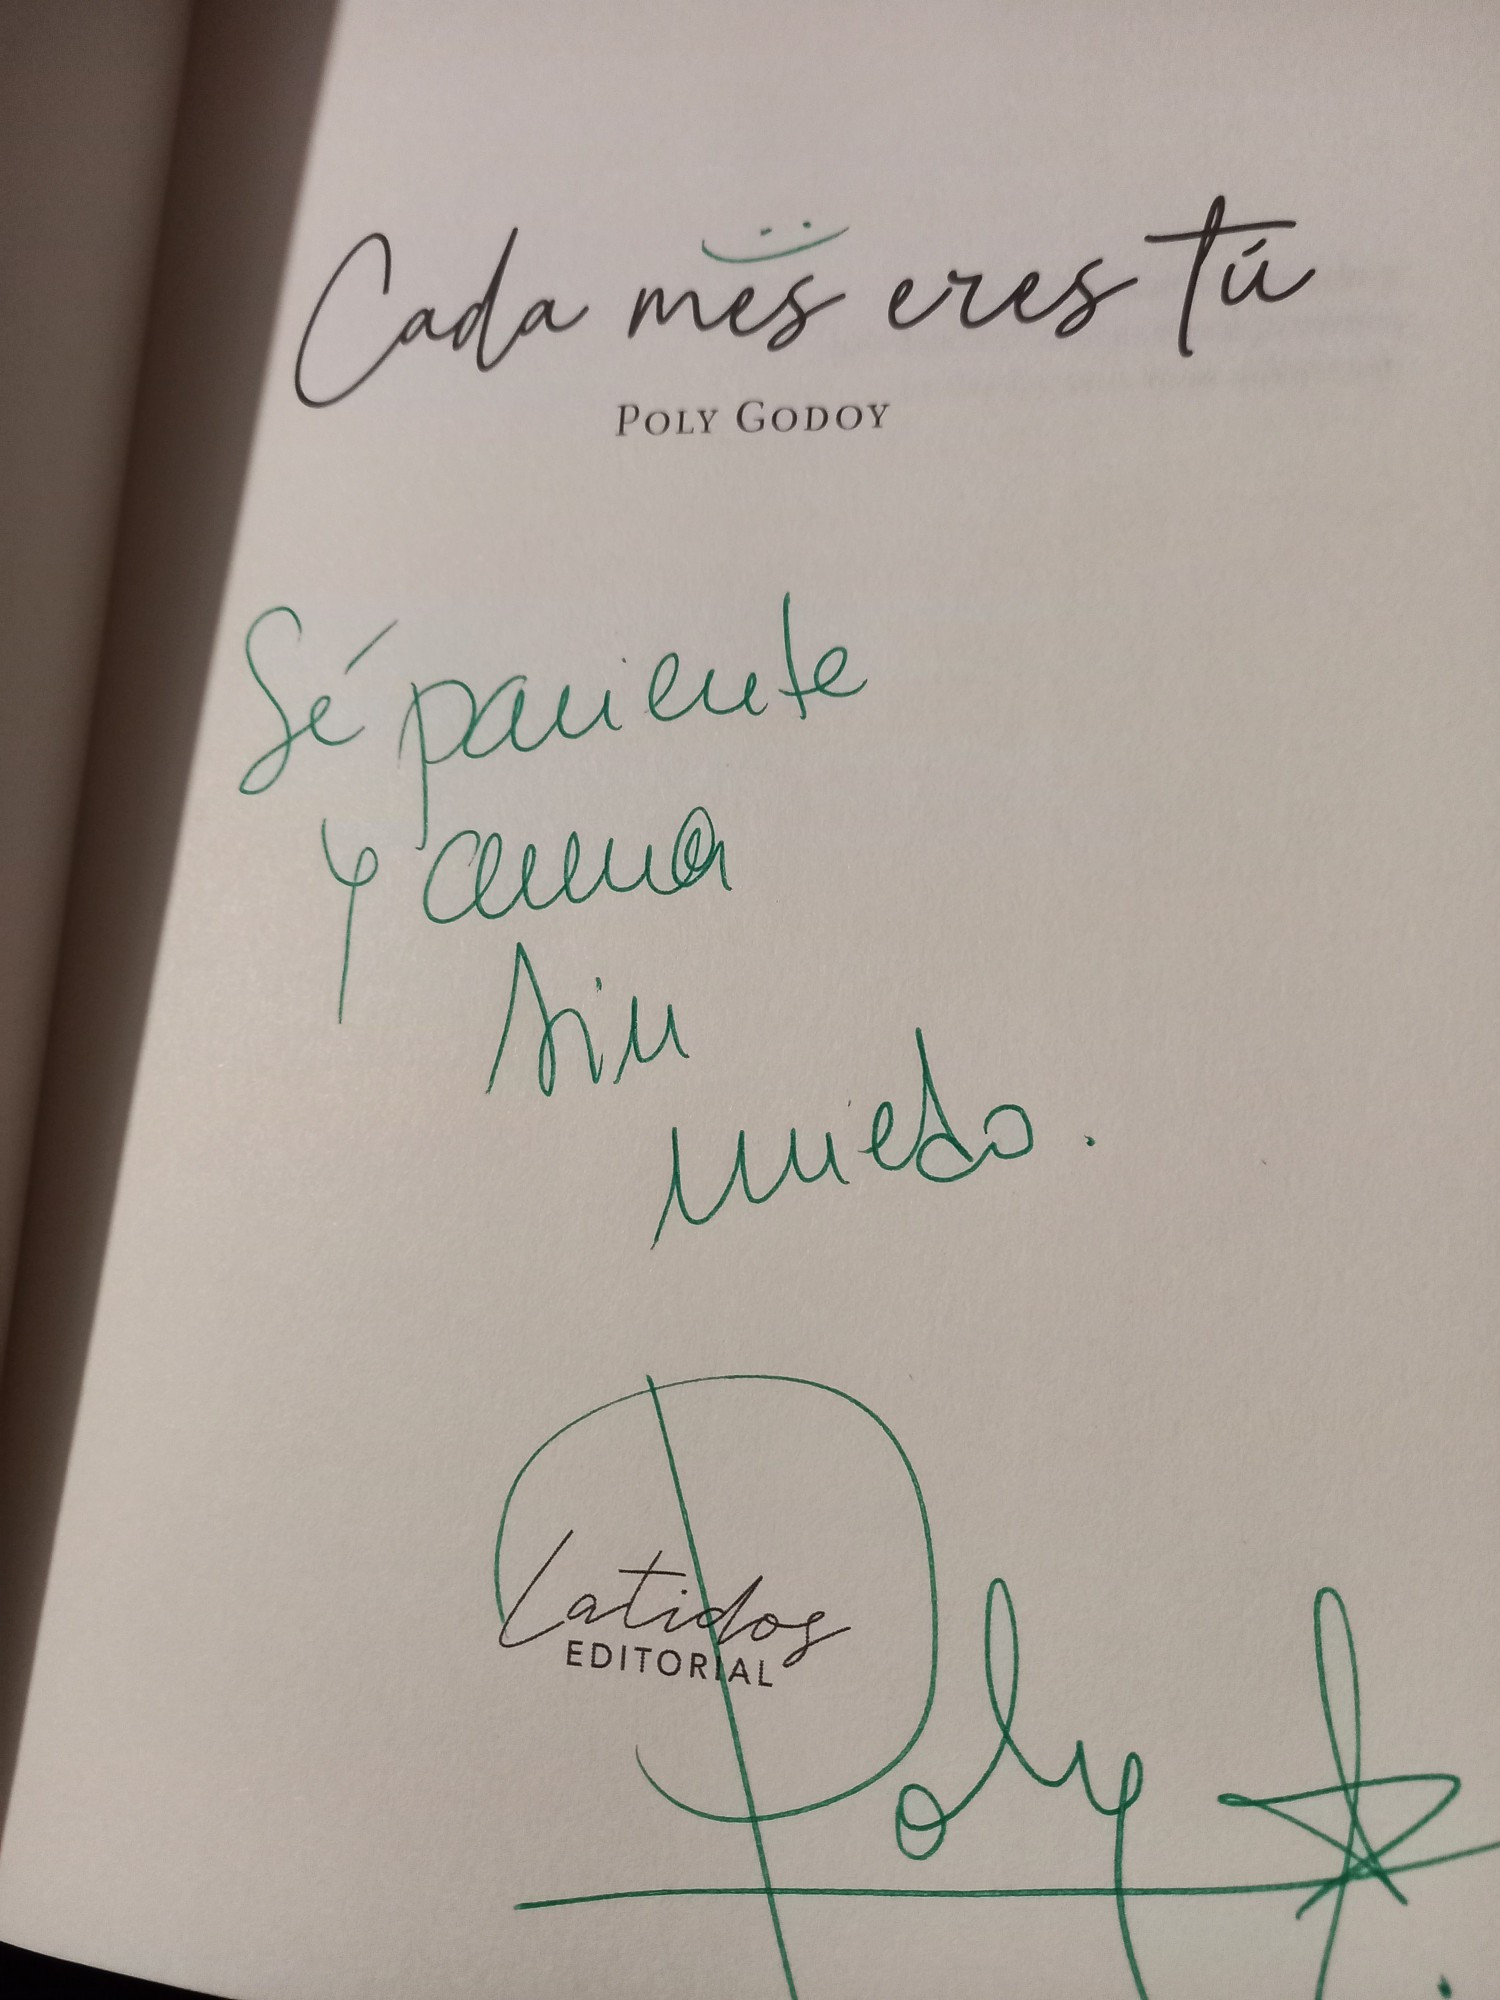 Cada mes eres tú
POLY GODOY
Sé paciente
y ama
sin
miedo.
Latidos
EDITORIAL
Poly